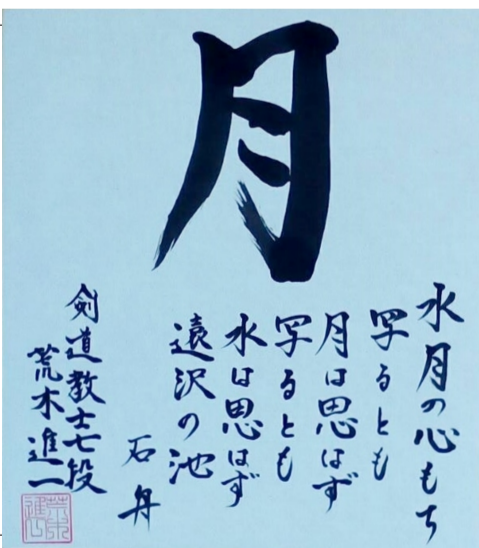 月
水月の心もち
写るとも
月は思はず
写るとも
水は思はず
遠沢の池
石舟
剣道教士七段
荒木進一